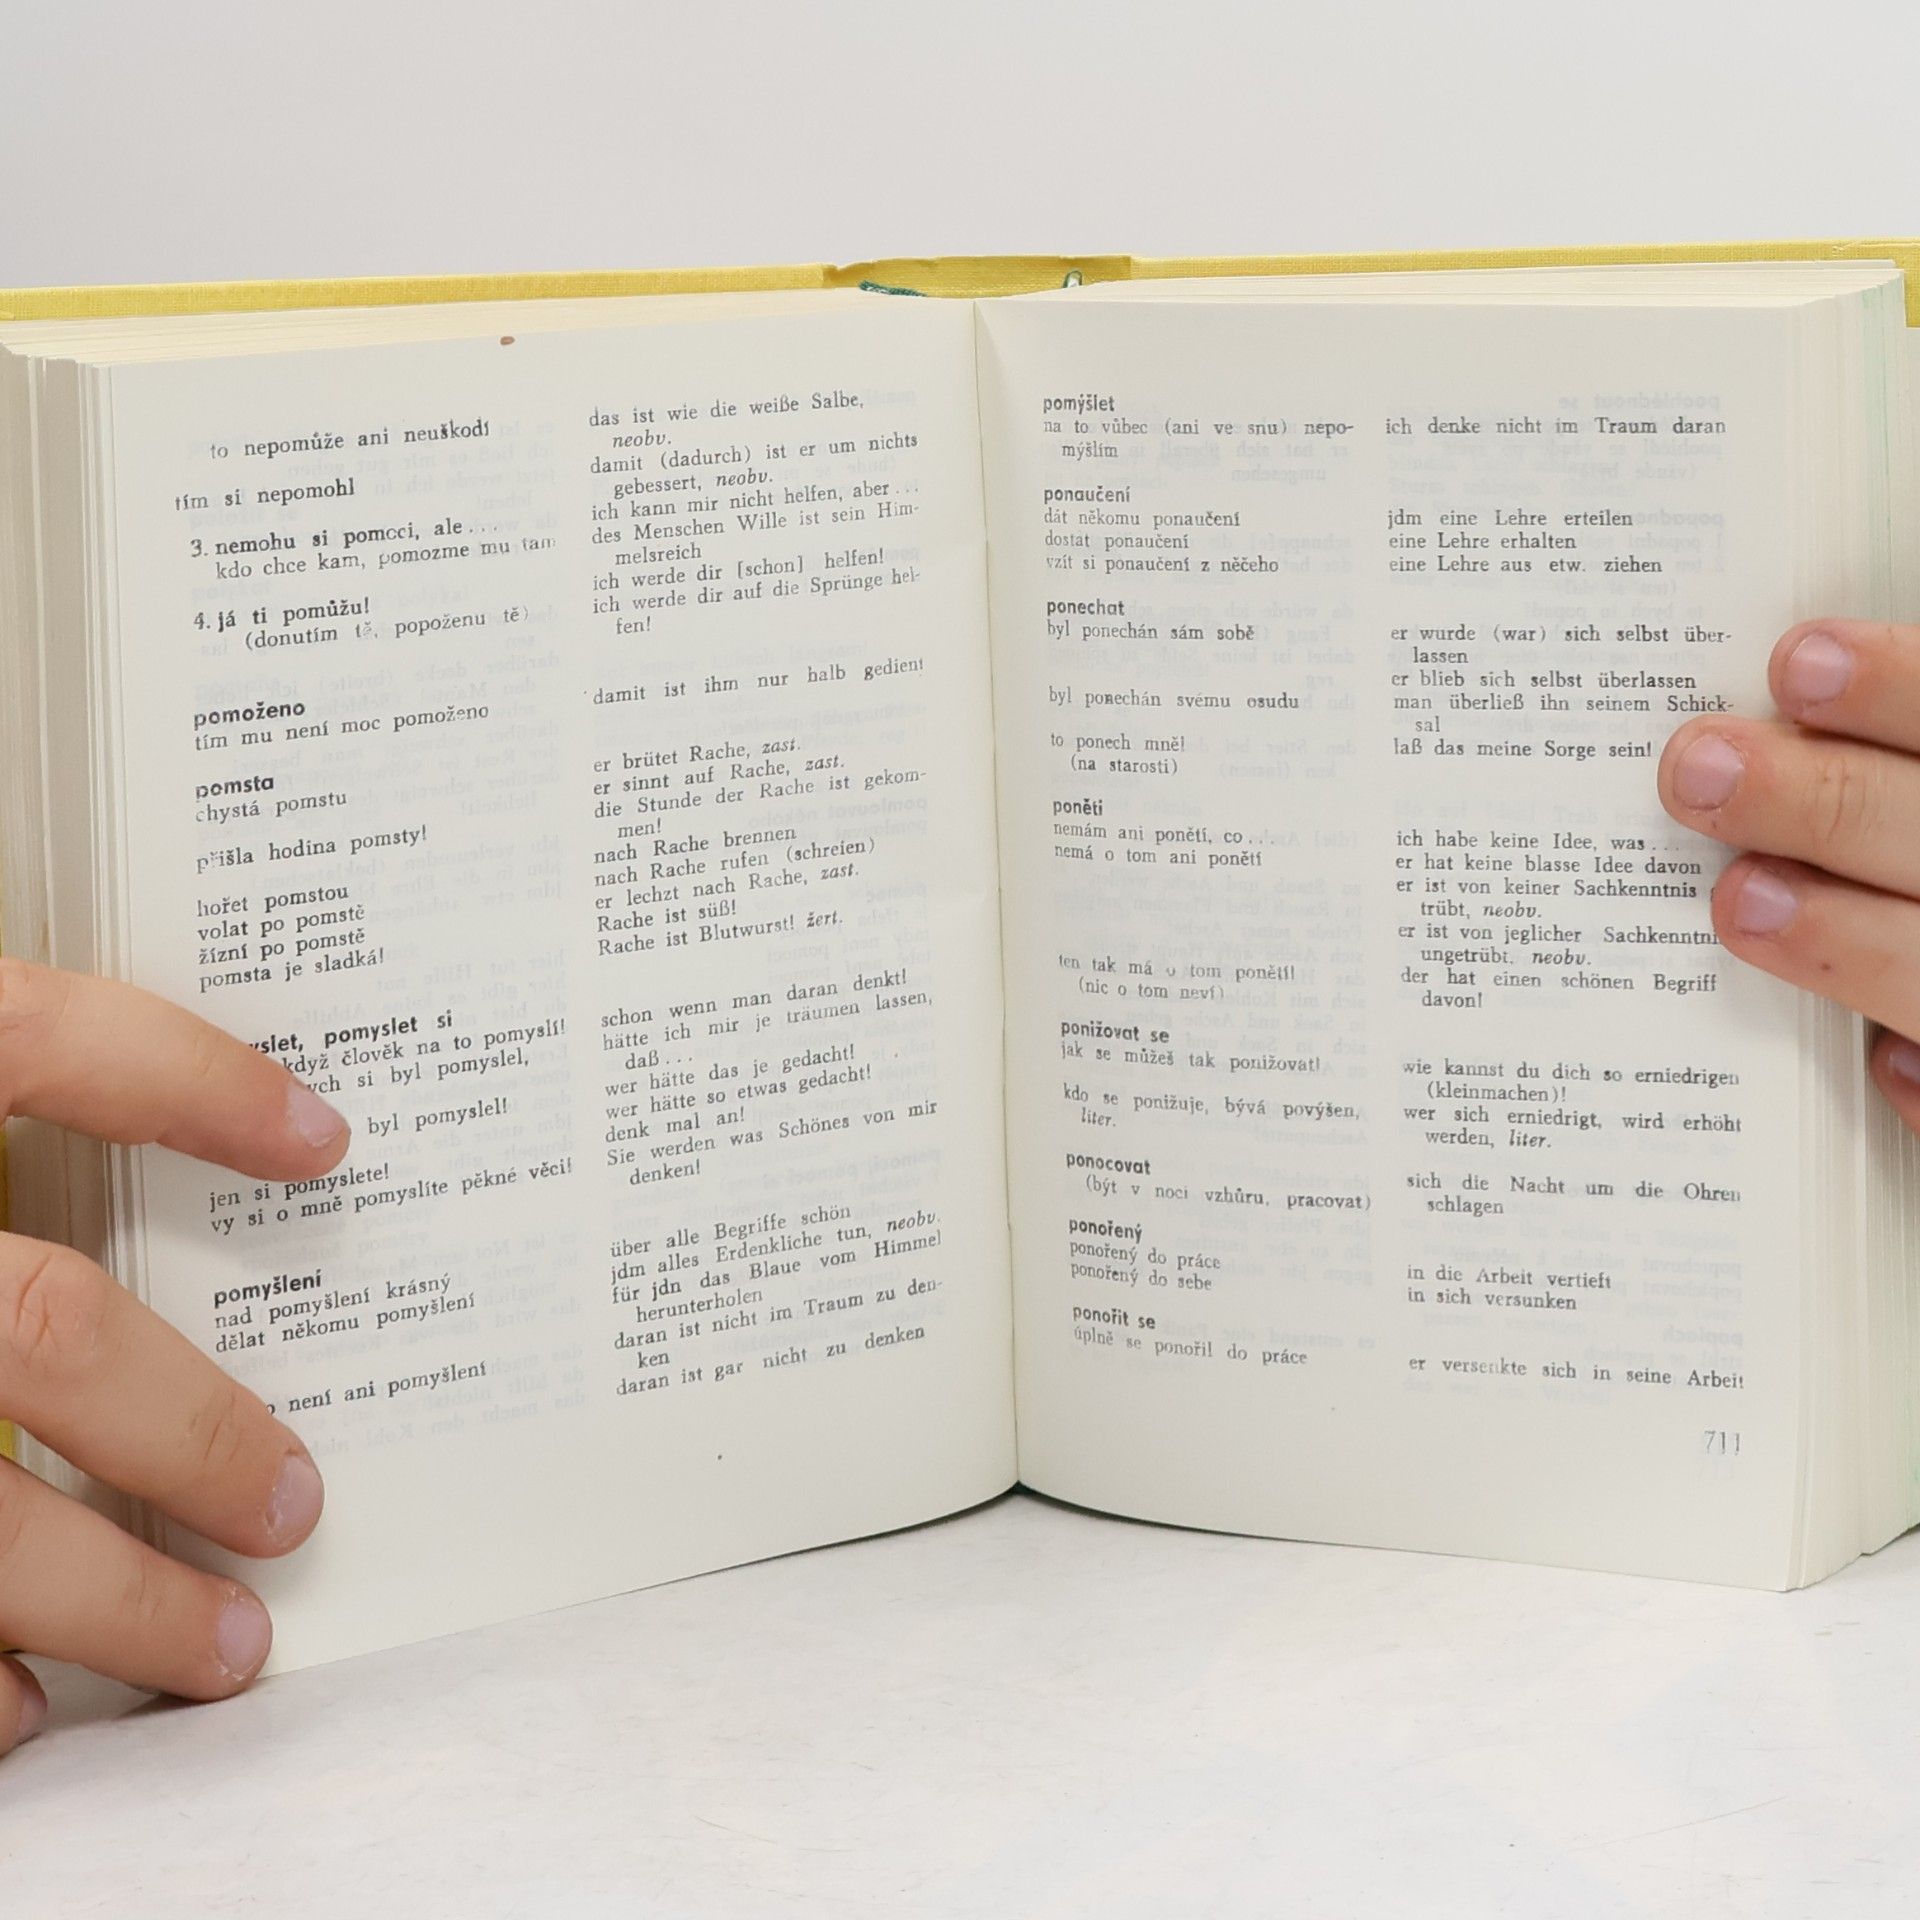 to nepomůže ani neuškodí
tím si nepomohl
3. nemohu si pomoci, ale...
kdo chce kam, pomozme mu tam
4. já ti pomůžu!
(donutím tě, popoženu tě)
pomoženo
tím mu není moc pomoženo
pomsta
chystá pomstu
přišla hodina pomsty!
hořet pomstou
volat po pomstě
žízní po pomstě
pomsta je sladká!
pomyslet si
když člověk na to pomyslí!
si byl pomyslel,
byl pomyslel!
jen si pomyslete!
vy si o mně pomyslíte pěkné věci!
pomyšlení
nad pomyšlení krásný
dělat někomu pomyšlení
není ani pomyšlení
das ist wie die weiße Salbe,
neobv.
damit (dadurch) ist er um nichts
gebessert, neobv.
ich kann mir nicht helfen, aber...
des Menschen Wille ist sein Him-
melsreich
ich werde dir [schon] helfen!
ich werde dir auf die Sprünge hel-
fen!
damit ist ihm nur halb gedient
er brütet Rache, zast.
er sinnt auf Rache, zast.
die Stunde der Rache ist gekom-
men!
nach Rache brennen
nach Rache rufen (schreien)
er lechzt nach Rache, zast.
Rache ist süß!
Rache ist Blutwurst! žert.
schon wenn man daran denkt!
hätte ich mir je träumen lassen,
daß...
wer hätte das je gedacht!
wer hätte so etwas gedacht!
denk mal an!
Sie werden was Schönes von mir
denken!
über alle Begriffe schön
jdm alles Erdenkliche tun, neobv.
für jdn das Blaue vom Himmel
herunterholen
daran ist nicht im Traum zu den-
ken
daran ist gar nicht zu denken
pomýšlet
na to vůbec (ani ve snu) nepo-
mýšlím
ponaučení
dát někomu ponaučení
dostat ponaučení
vzít si ponaučení z něčeho
ponechat
byl ponechán sám sobě
byl ponechán svému osudu
to ponech mně!
(na starosti)
ponětí
nemám ani ponětí, co...
nemá o tom ani ponětí
ten tak má o tom ponětí!
(nic o tom neví)
ponižovat se
jak se můžeš tak ponižovat!
kdo se ponižuje, bývá povýšen,
liter.
ponocovat
(být v noci vzhůru, pracovat)
ponořený
ponořený do práce
ponořený do sebe
ponořit se
úplně se ponořil do práce
ich denke nicht im Traum daran
jdm eine Lehre erteilen
eine Lehre erhalten
eine Lehre aus etw. ziehen
er wurde (war) sich selbst über-
lassen
er blieb sich selbst überlassen
man überließ ihn seinem Schick-
sal
laß das meine Sorge sein!
ich habe keine Idee, was...
er hat keine blasse Idee davon
er ist von keiner Sachkenntnis
trübt, neobv.
er ist von jeglicher
ungetrübt, neobv.
der hat einen schönen Begriff
davon!
wie kannst du dich so erniedrigen
(kleinmachen)!
wer sich erniedrigt, wird erhöht
werden, liter.
sich die Nacht um die Ohren
schlagen
in die Arbeit vertieft
in sich versunken
er versenkte sich in seine Arbeit
711